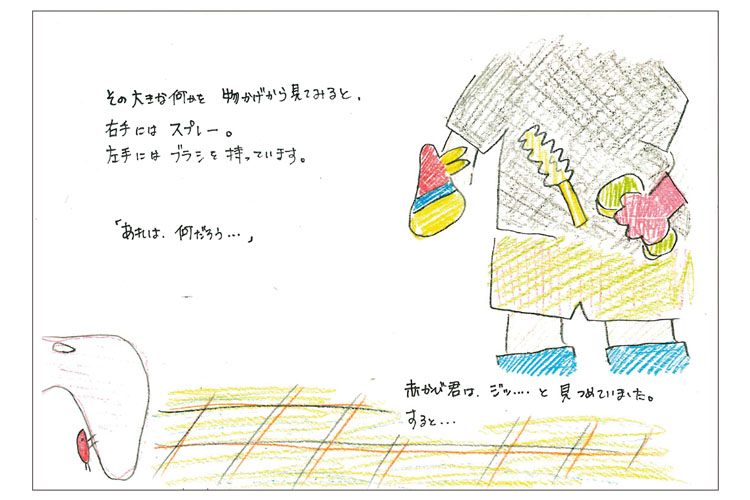 その大きな何かを 物かげから見てみると、
右手には スプレー。
左手には ブラシを 持っています。
「あれは、何だろう…」
赤かび君は、ジッ…. と 見つめていました。
すると…